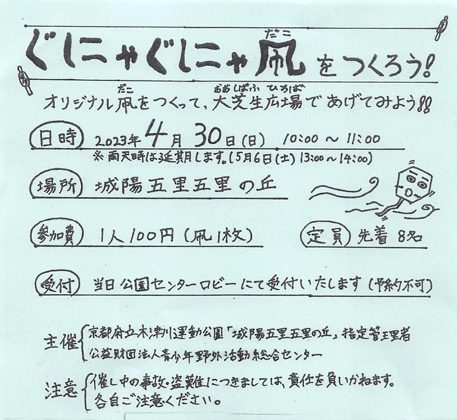 ぐにゃぐにゃ凧をつくろう!
だこ
オリジナル凧をつくって、大芝生広場であげてみよう!!
だこ おおしばふ ひろば
日時 2023年4月30日(日) 10:00～11:00
※雨天時は延期します。(5月6日(土) 13:00～14:00)
場所 城陽五里五里の丘
参加費 1人100円(凧1枚) 定員 先着8名
受付 当日公園センターロビーにて受付いたします(予約不可)
主催 京都府立木津川運動公園「城陽五里五里の丘」指定管理者
公益財団法人青少年野外活動総合センター
注意 催し中の事故・盗難につきましては、責任を負いかねます。
各自ご注意ください。